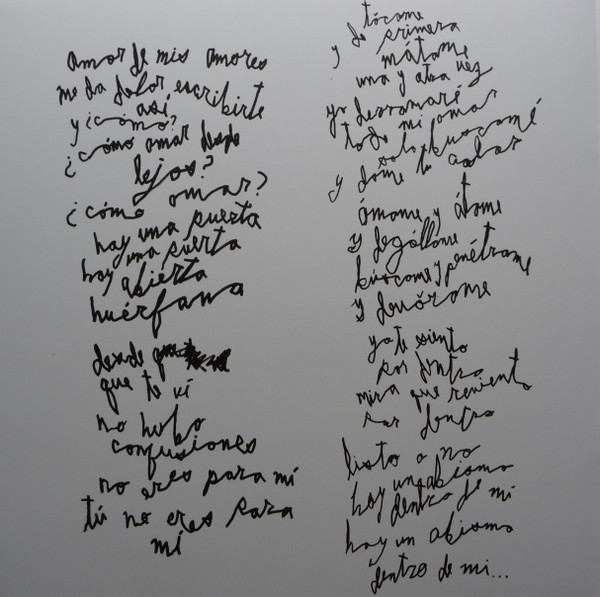 amor de mis amores
me da dolor escribirte
así
y ¿cómo?
¿cómo amar desde
lejos?
¿cómo amar?
hay una puerta
hay una puerta
hay abiérta
huérfana
desde
que te vi
no hubo
confusiones
no eres para mí
tú no eres para
mí
y de tócame
y primera
mátame
una y otra vez
yo derramaré
todo mi amar
solo búscamé
y dáme tu
ámame y átame
y dególlame
búscame y penétrame
y devórame
ya te siento
por dentro
mira que reviento
por dentro
listo o no
hay un abismo
dentro de mi
hay un abismo
dentro de mi...